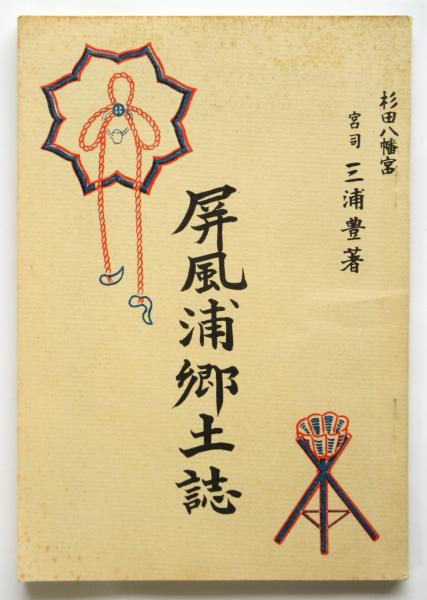 杉田八幡宮
宮司 三浦豊著
屏風浦郷土誌